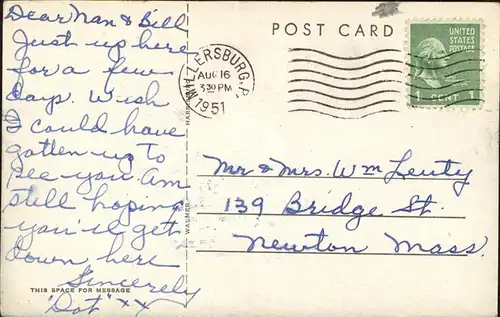 Dear Nan & Bill
Just up here
for a few
days. Wish
I could have
gotten up to
see you. Am
still hoping
you'll get
down here
Sincerely
"Dot" xx
THIS SPACE FOR MESSAGE
POST CARD
MILLERSBURG, P
AUG 16
3 30 PM
1951
UNITED
STATES
POSTAGE
1 CENT 1
Mr & Mrs. Wm Leuty
139 Bridge St.
Newton Mass.